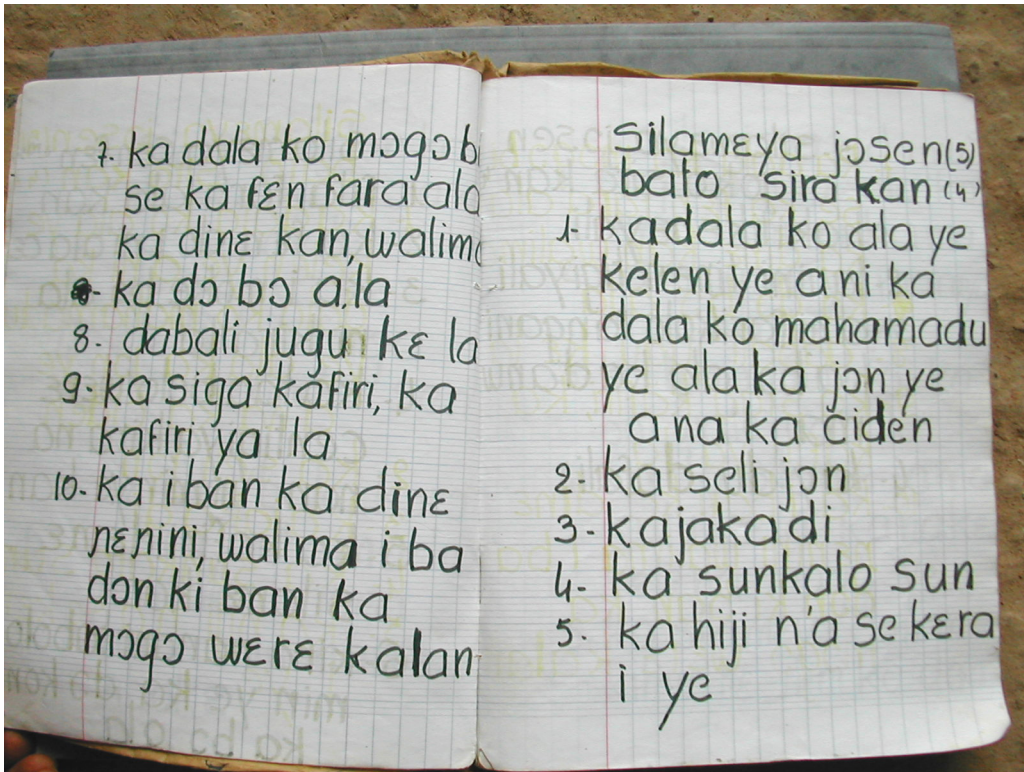 7. ka dala ko mɔgɔ b
se ka fɛn fara ala
ka dinɛ kan, walima
- ka dɔ bɔ a,la
8. dabali jugu kɛ la
9. ka siga kafiri, ka
kafiri ya la
10. ka i ban ka dinɛ
ɲɛnini, walima i ba
dɔn ki ban ka
mɔgɔ wɛrɛ kalan
Silamɛya jɔsen (5)
bato sira kan (4)
1- kadala ko ala ye
kelen ye ani ka
dala ko mahamadu
ye ala ka jɔn ye
ana ka ciden
2- ka seli jɔn
3- kajaka di
4- ka sunkalo sun
5. ka hiji n'a se kɛra
i ye